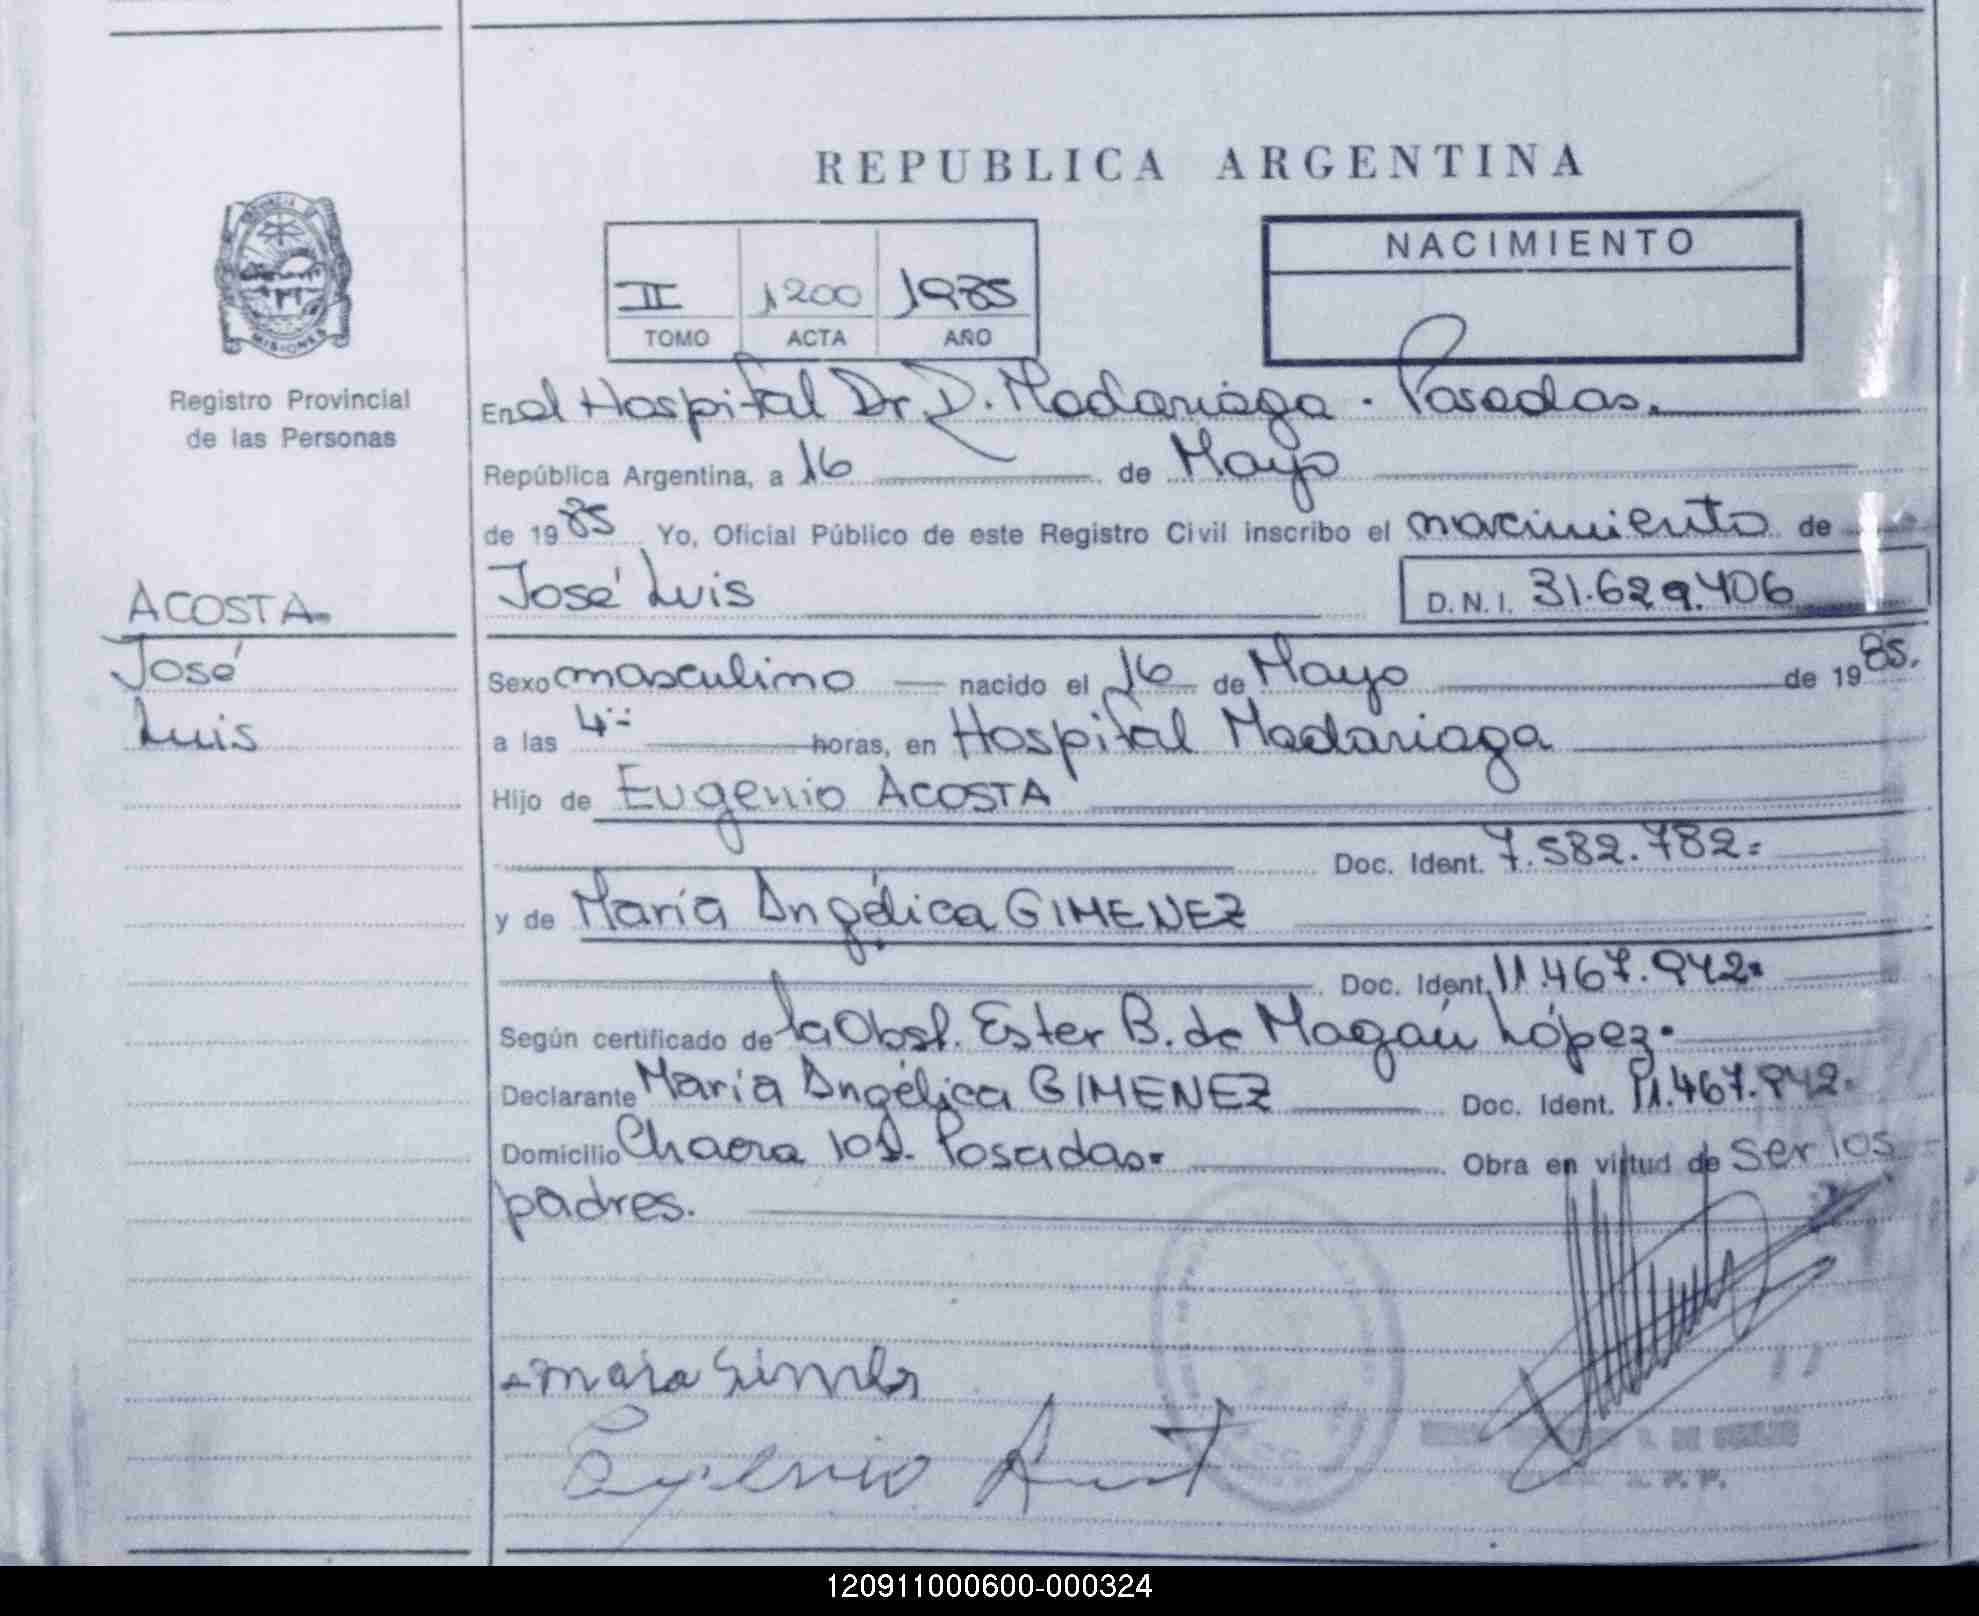 REPUBLICA ARGENTINA
PROVINCIA DE
MISIONES
Registro Provincial
de las Personas
NACIMIENTO
II 1200 1985
TOMO ACTA AÑO
En el Hospital Dr R. Madariaga - Posadas.
República Argentina, a 16 de Mayo
de 1985 Yo, Oficial Público de este Registro Civil inscribo el nacimiento de
José Luis D.N.I. 31.629.406
ACOSTA
José
Luis
Sexo masculino nacido el 16 de Mayo de 1985.
a las 4 horas, en Hospital Madariaga
Hijo de Eugenio ACOSTA
Doc. Ident. 7.582.782
y de María Angélica GIMENEZ
Doc. Ident. 11.467.942
Según certificado de la Obst. Ester B. de Magaú López
Declarante María Angélica GIMENEZ Doc. Ident. 11.467.942
Domicilio Chacra 101. Posadas Obra en virtud de ser los
padres.
Eugenio
120911000600-000324